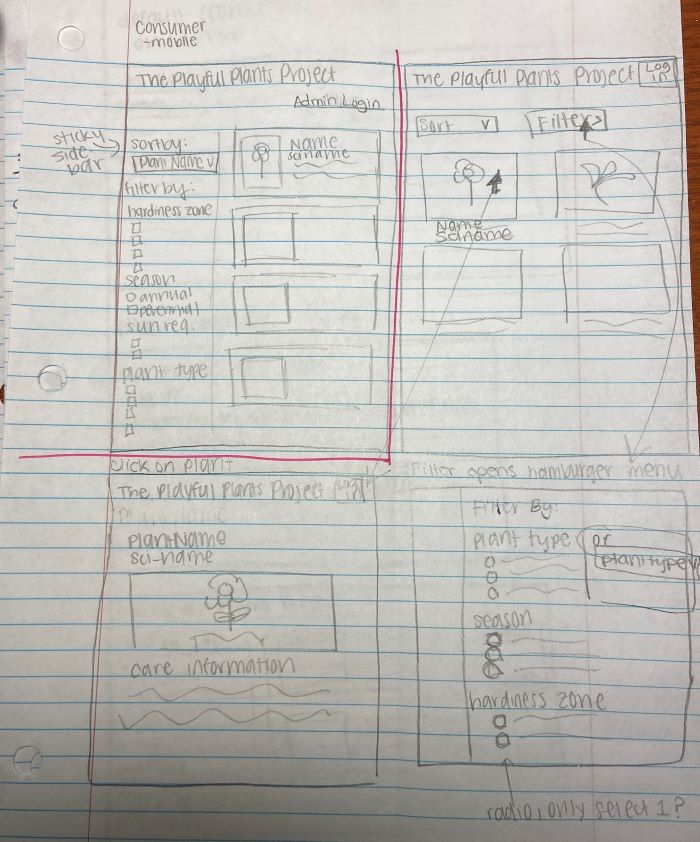 Consumer
-mobile
The Playful Plants Project
Admin Login
sticky
side
bar
sort by:
Plant Name v
filter by:
hardiness zone
season
annual
perennial
sun req.
plant type
Name
sciname
The Playful Plants Project
Log
in
Sort v
Filter >
Name
Sciname
click on plant
The Playful Plants Project
Plant Name
sci-name
care information
Filter opens hamburger menu
Filter By:
plant type
or
plant type v
season
hardiness zone
radio, only select 1?